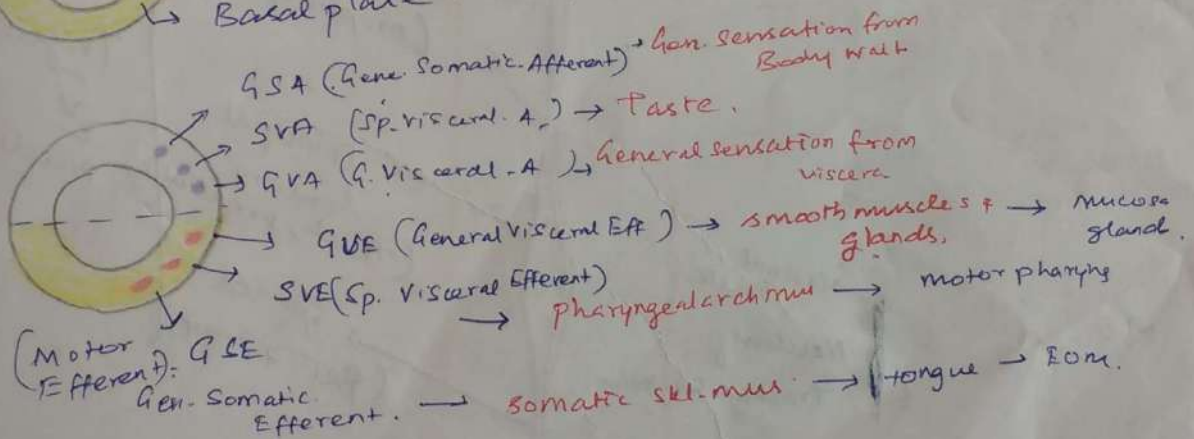 Basal plate
GSA (Gene. Somatic. Afferent) → Gen. Sensation from
Body wall
SVA (Sp. visceral. A.) → Taste.
GVA (G. Visceral - A) → General sensation from
viscera
GVE (General Visceral Eff) → smooth muscles & → mucosa
glands, gland.
SVE (Sp. Visceral Efferent)
→ pharyngeal arch mus → motor pharynx
(Motor Efferent): GSE
Gen. Somatic Efferent. — somatic skl. mus. → tongue → EOM.